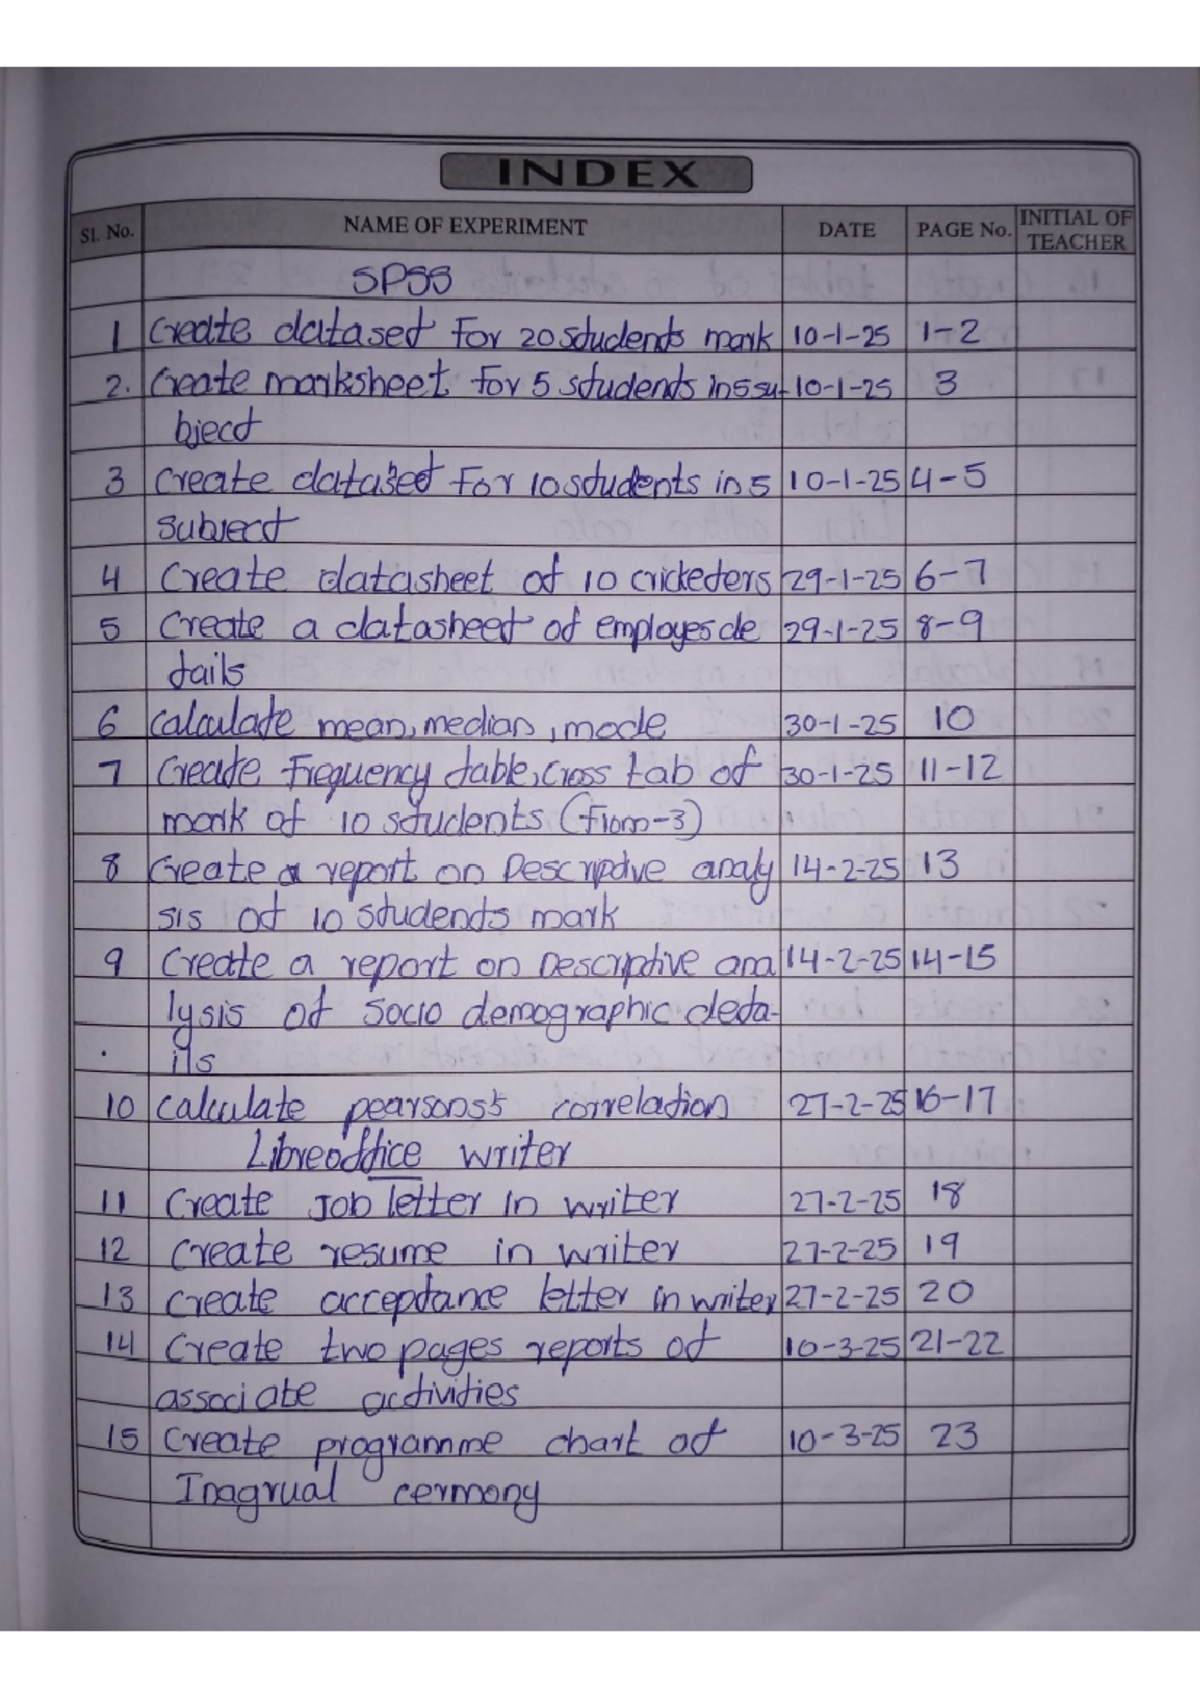 INDEX
Sl. No. NAME OF EXPERIMENT DATE PAGE No. INITIAL OF TEACHER
SPSS
1 Create dataset For 20 students mark 10-1-25 1-2
2. Create marksheet for 5 students in 5 su- 10-1-25 3
bject
3 Create dataset For 10 students in 5 10-1-25 4-5
subject
4 Create datasheet of 10 cricketers 29-1-25 6-7
5 Create a datasheet of employes de 29-1-25 8-9
tails
6 Calculate mean, median, mode 30-1-25 10
7 Create Frequency table, Cross tab of 30-1-25 11-12
mark of 10 students (From-3)
8 Create a report on Descriptive analy 14-2-25 13
sis of 10 students mark
9 Create a report on Descriptive ana 14-2-25 14-15
lysis of Socio demographic deta-
ils
10 Calculate pearsons's correlation 27-2-25 16-17
Libreoffice writer
11 Create Job letter in writer 27-2-25 18
12 Create resume in writer 27-2-25 19
13 Create acceptance letter in writer 27-2-25 20
14 Create two pages reports of 10-3-25 21-22
associate activities
15 Create programme chart of 10-3-25 23
Inagrual cermony